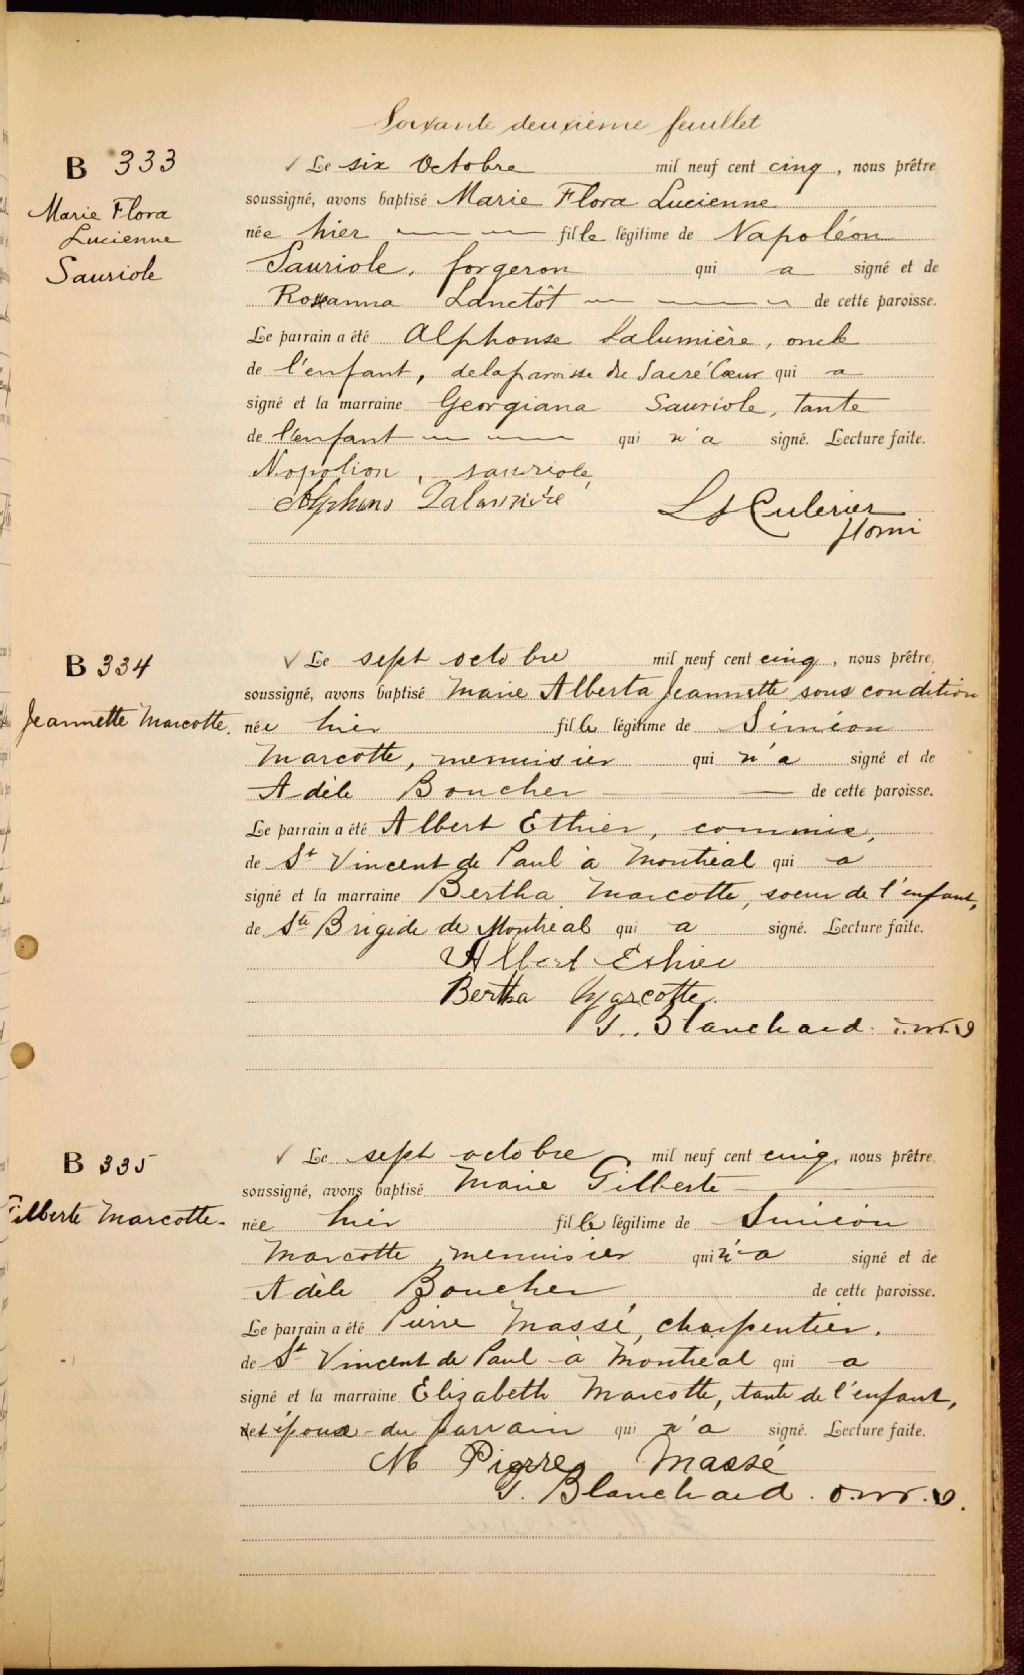 Soixante deuxième feuillet
B 333
Marie Flora
Lucienne
Sauriole
Le six Octobre mil neuf cent cinq, nous prêtre
soussigné, avons baptisé Marie Flora Lucienne
née hier fille légitime de Napoléon
Sauriole, forgeron qui a signé et de
Rosanna Lanctôt de cette paroisse.
Le parrain a été Alphonse Lalumière, oncle
de l'enfant, de la paroisse du Sacré Cœur qui a
signé et la marraine Georgiana Sauriole, tante
de l'enfant qui n'a signé. Lecture faite.
Napolion, sauriole,
Alphons Lalumière
B 334
Jeannette Marcotte.
Le sept octobre mil neuf cent cinq, nous prêtre,
soussigné, avons baptisé Marie Alberta Jeannette sous condition
née hier fille légitime de Siméon
Marcotte, menuisier qui n'a signé et de
Adèle Boucher de cette paroisse.
Le parrain a été Albert Ethier, commis,
de St Vincent de Paul à Montréal qui a
signé et la marraine Bertha Marcotte, soeur de l'enfant,
de Ste Brigide de Montréal qui a signé. Lecture faite.
Albert Ethier
Bertha Marcotte.
J. Blanchard. o.m.i.
B 335
Gilberte Marcotte.
Le sept octobre mil neuf cent cinq, nous prêtre,
soussigné, avons baptisé Marie Gilberte
née hier fille légitime de Siméon
Marcotte, menuisier qui n'a signé et de
Adèle Boucher de cette paroisse.
Le parrain a été Pierre Massé, charpentier,
de St Vincent de Paul à Montréal qui a
signé et la marraine Elizabeth Marcotte, tante de l'enfant,
et épouse du parrain qui n'a signé. Lecture faite.
M Pierre Massé
J. Blanchard. o.m.i.